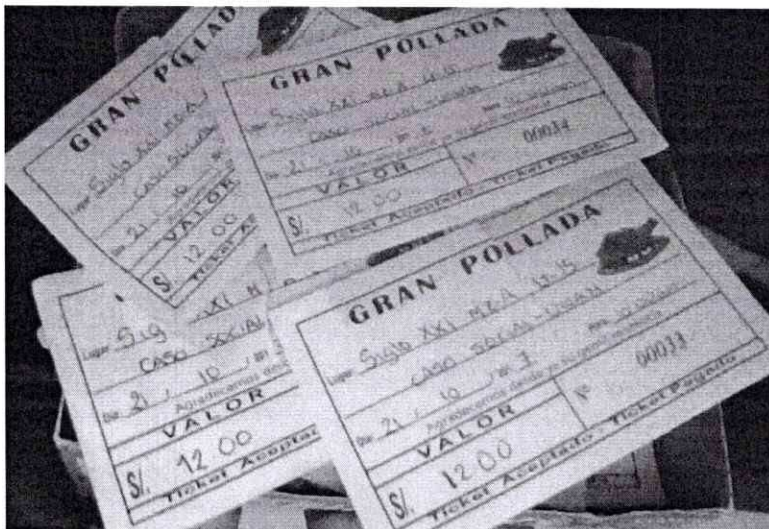 GRAN POLLAD
Lugar Siglo XXI MZA
CASO SOCIAL
Día 21 / 10
VALOR
S/. 12 00
Ticket Ac
GRAN POLLADA
Lugar Siglo XXI MZA LT-15
CASO SOCIAL
Día 21 / 10
Agradecemos desde ya su
VALOR
Nº 00037
S/. 12 00
Ticket Aceptado - Ticket Pagado
Lugar Sig XXI M
CASO SOCIAL
Día 21 / 10
Agradecemos desde
VALOR
S/. 12 00
Ticket Aceptad
GRAN POLLADA
Lugar Siglo XXI MZA LT-15
CASO SOCIAL
Día 21 / 10
Agradecemos desde ya su
VALOR
Nº
S/. 12 00
Ticket Aceptado - Ticket Pagado